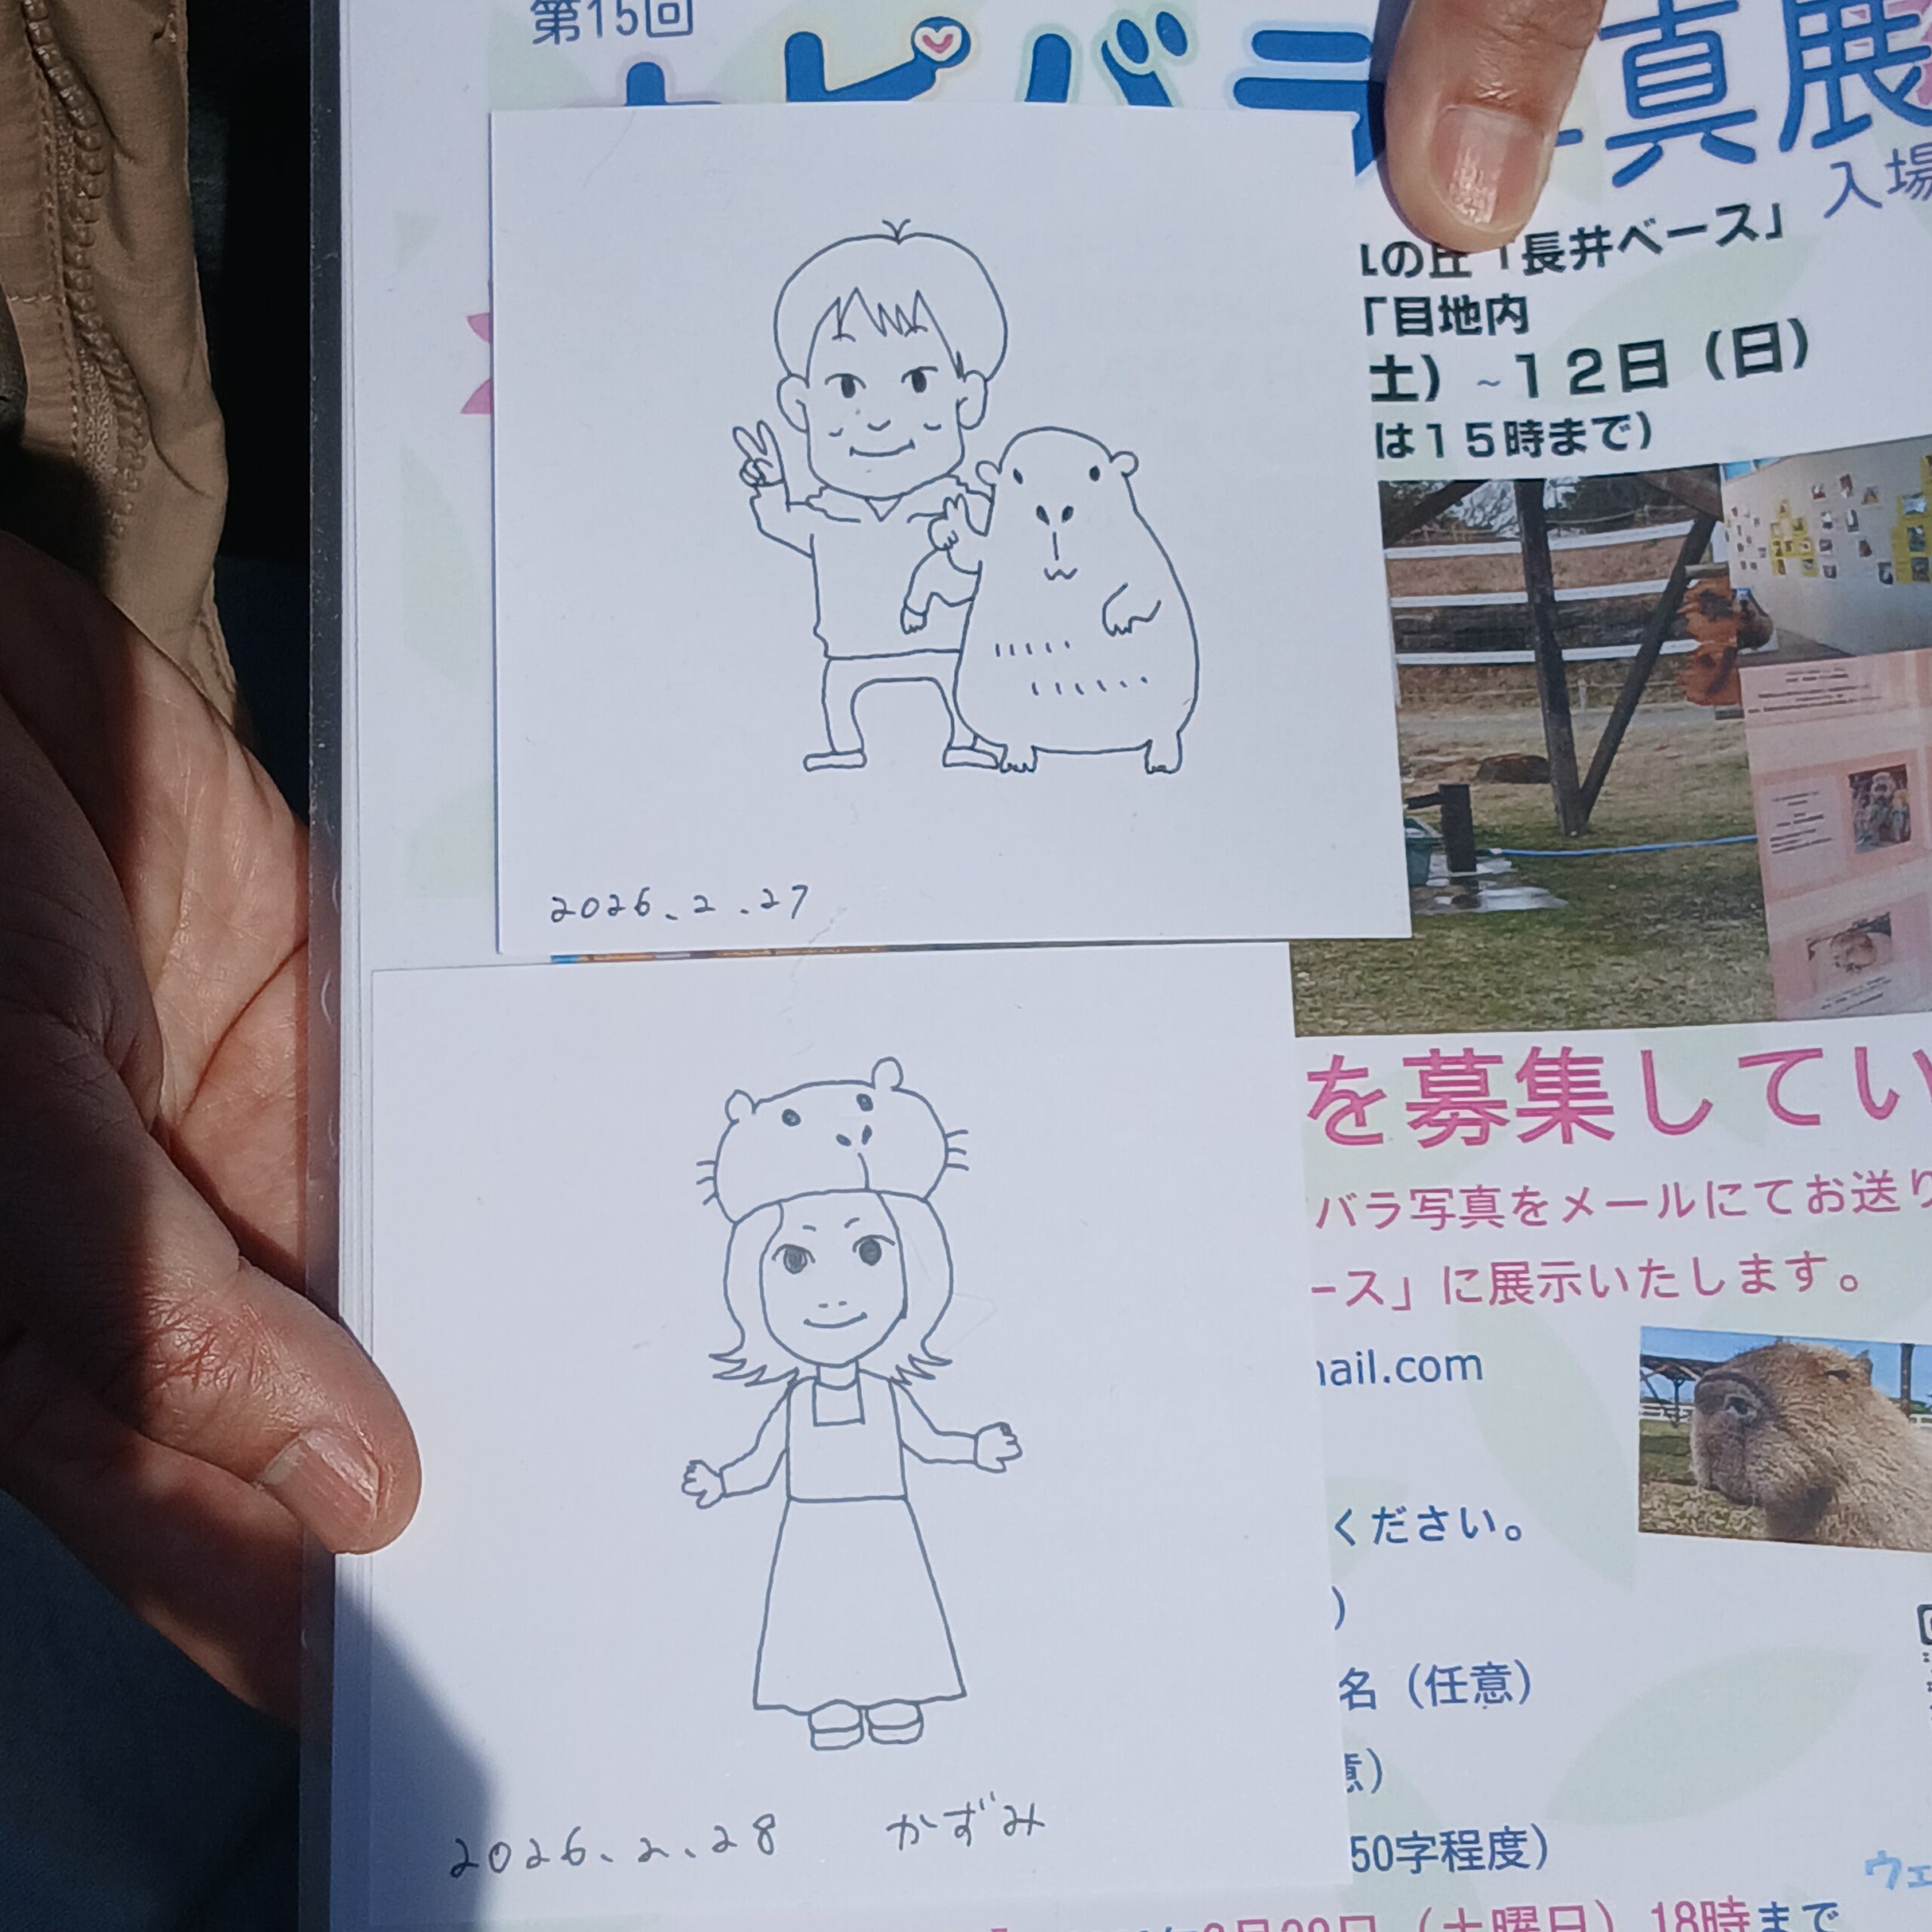 第15回
カピバラ写真展
入場
の丘「長井ベース」
「目地内
土）~12日（日）
は15時まで）
2026.2.27
を募集してい
バラ写真をメールにてお送り
ース」に展示いたします。
ail.com
ください。
）
名（任意）
意）
2026.2.28 かずみ
50字程度）
ウェ
（土曜日）18時まで